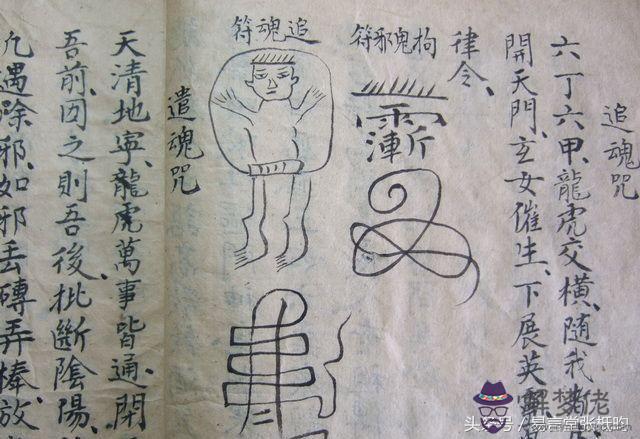 追魂咒
六丁六甲、龍虎交橫、隨我
開天門、玄女催生、下展英
律令、
拘鬼邪符
追魂符
遣魂咒
天清地寧、龍虎萬事皆通、閉
吾前、因之則吾後、批斷陰陽、
凡遇除邪、如邪丢磚弄棒、放
头条号/易言堂张